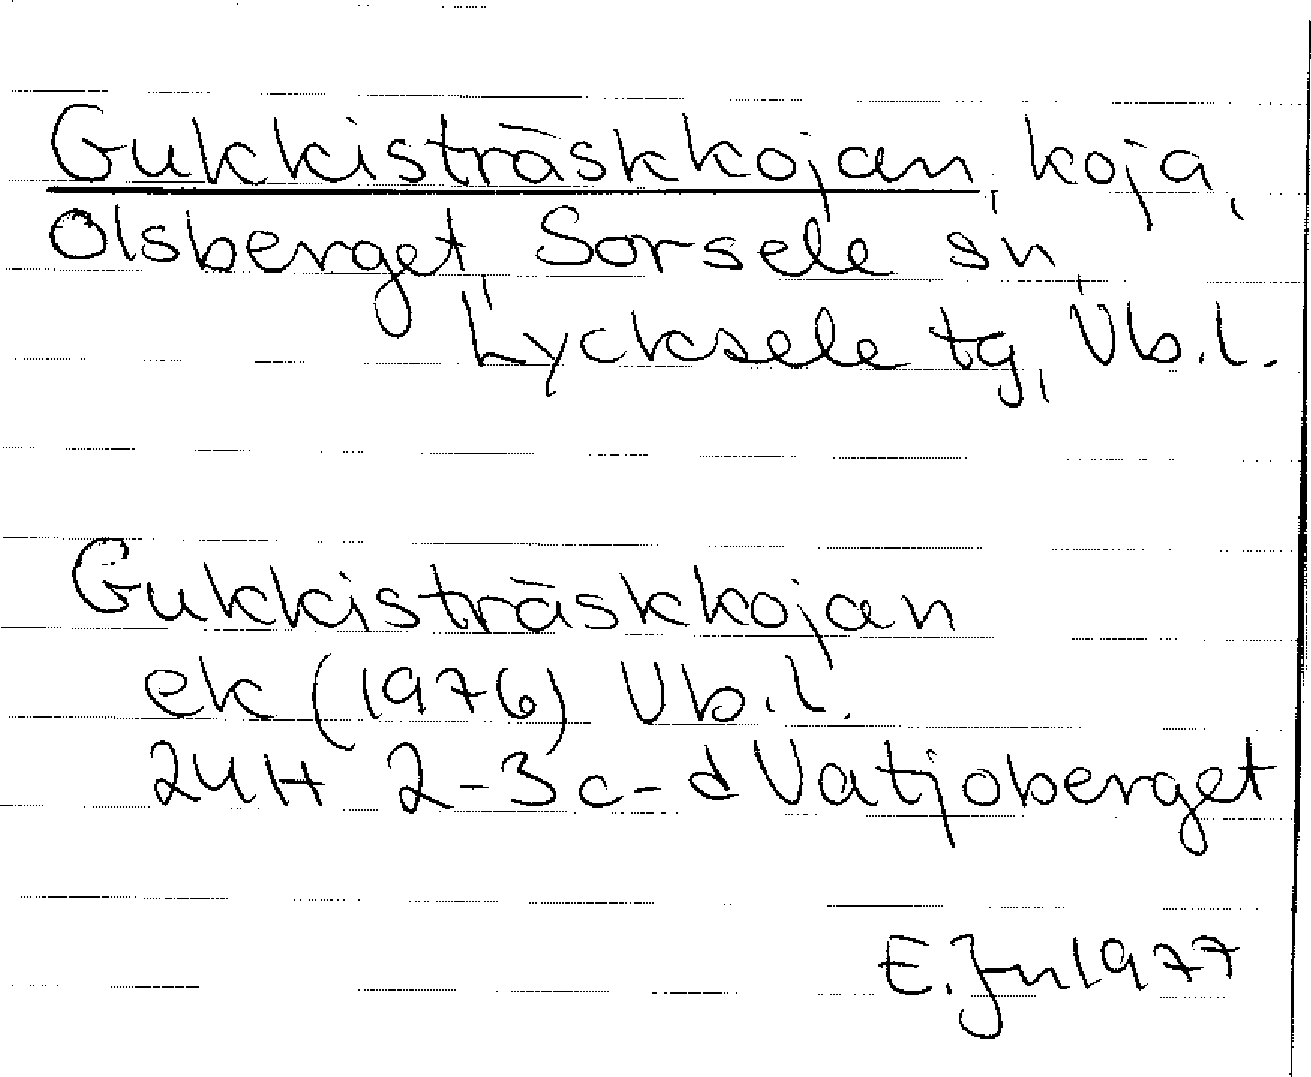 Gukkisträskkojan, koja,
Olsberget, Sorsele sn,
Lycksele tg, Vb.l.
Gukkisträskkojan
ek (1976) Vb.l.
24H 2-3c-d Vatjoberget
E. Jn 1977